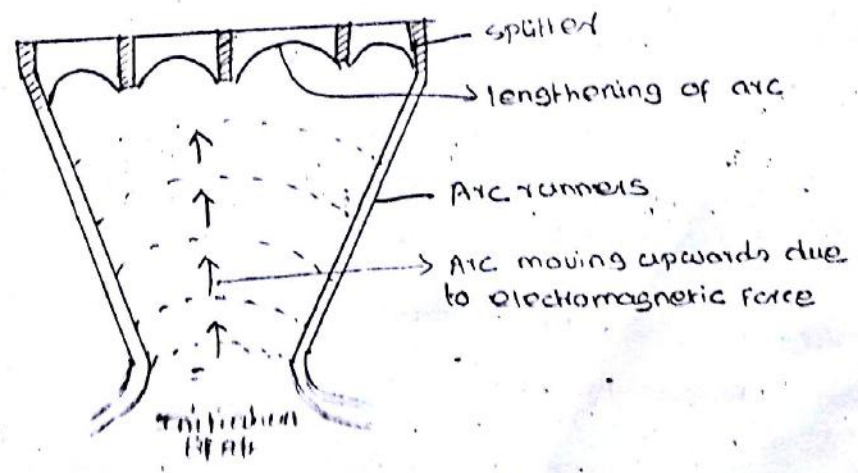 splitter
lengthening of arc
Arc runners
Arc moving upwards due
to electromagnetic force